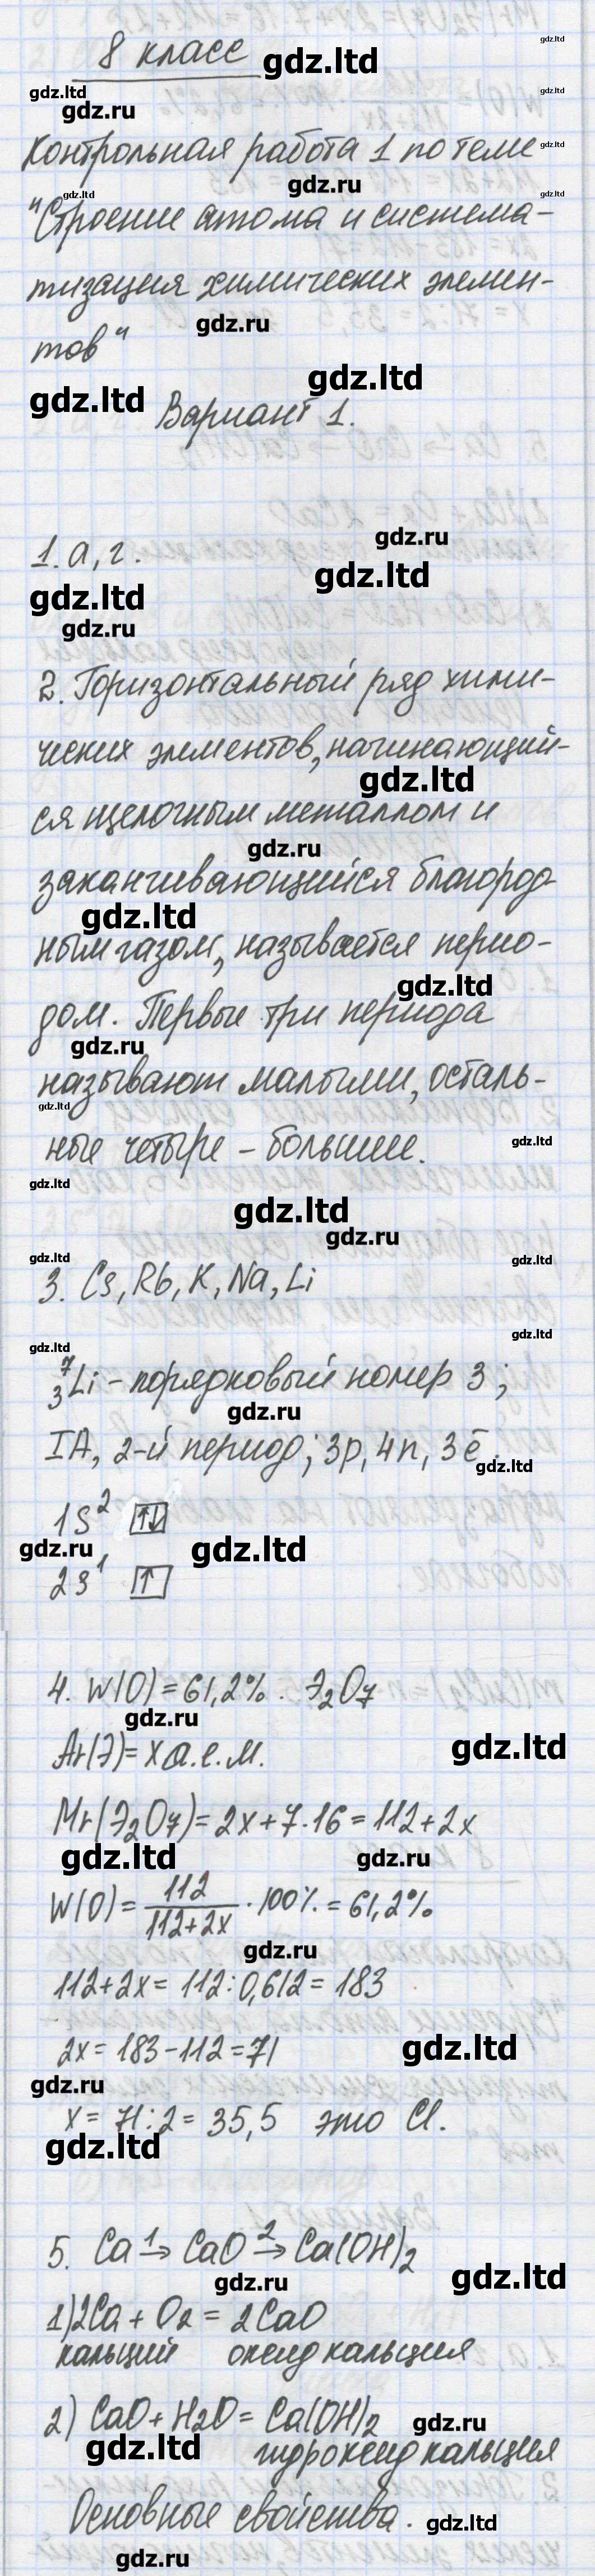 8 класс gdz.ltd
gdz.ltd
gdz.ltd
gdz.ltd
gdz.ru
Контрольная работа 1 по теме
gdz.ltd
gdz.ru
gdz.ltd
gdz.ltd
"Строение атома и система-
тизация химических элемен-
gdz.ru
тов"
gdz.ltd
gdz.ltd
Вариант 1.
gdz.ru
1. а, г.
gdz.ltd
gdz.ltd
gdz.ru
2. Горизонтальный ряд хими-
ческих элементов, начинающий-
gdz.ltd
ся щелочным металлом и
gdz.ru
заканчивающийся благород-
gdz.ltd
ным газом, называется перио-
gdz.ltd
дом. Первые три периода
gdz.ru
называют малыми, осталь-
gdz.ltd
ные четыре - большие.
gdz.ltd
gdz.ltd
gdz.ltd
gdz.ru
gdz.ltd
gdz.ltd
3. Cs, Rb, K, Na, Li
gdz.ltd
gdz.ltd
⁷₃Li - порядковый номер 3;
gdz.ru
IA, 2-й период; 3p, 4n, 3ē.
gdz.ltd
1S² ↑↓
gdz.ru
gdz.ltd
2s¹ ↑
4. W(O) = 61,2%. Э₂O₇
gdz.ru
gdz.ltd
Ar(Э) = x а.е.м.
Mr(Э₂O₇) = 2x + 7·16 = 112 + 2x
gdz.ltd
gdz.ru
W(O) = 112/(112+2x) · 100% = 61,2%
gdz.ru
112+2x = 112:0,612 = 183
2x = 183-112 = 71
gdz.ltd
gdz.ru
x = 71:2 = 35,5 это Cl.
gdz.ltd
5. Ca →¹ CaO →² Ca(OH)₂
gdz.ru
gdz.ltd
1) 2Ca + O₂ = 2CaO
кальций оксид кальция
2) CaO + H₂O = Ca(OH)₂
gdz.ru
gdz.ltd
гидроксид кальция
Основные свойства.
gdz.ltd
gdz.ru